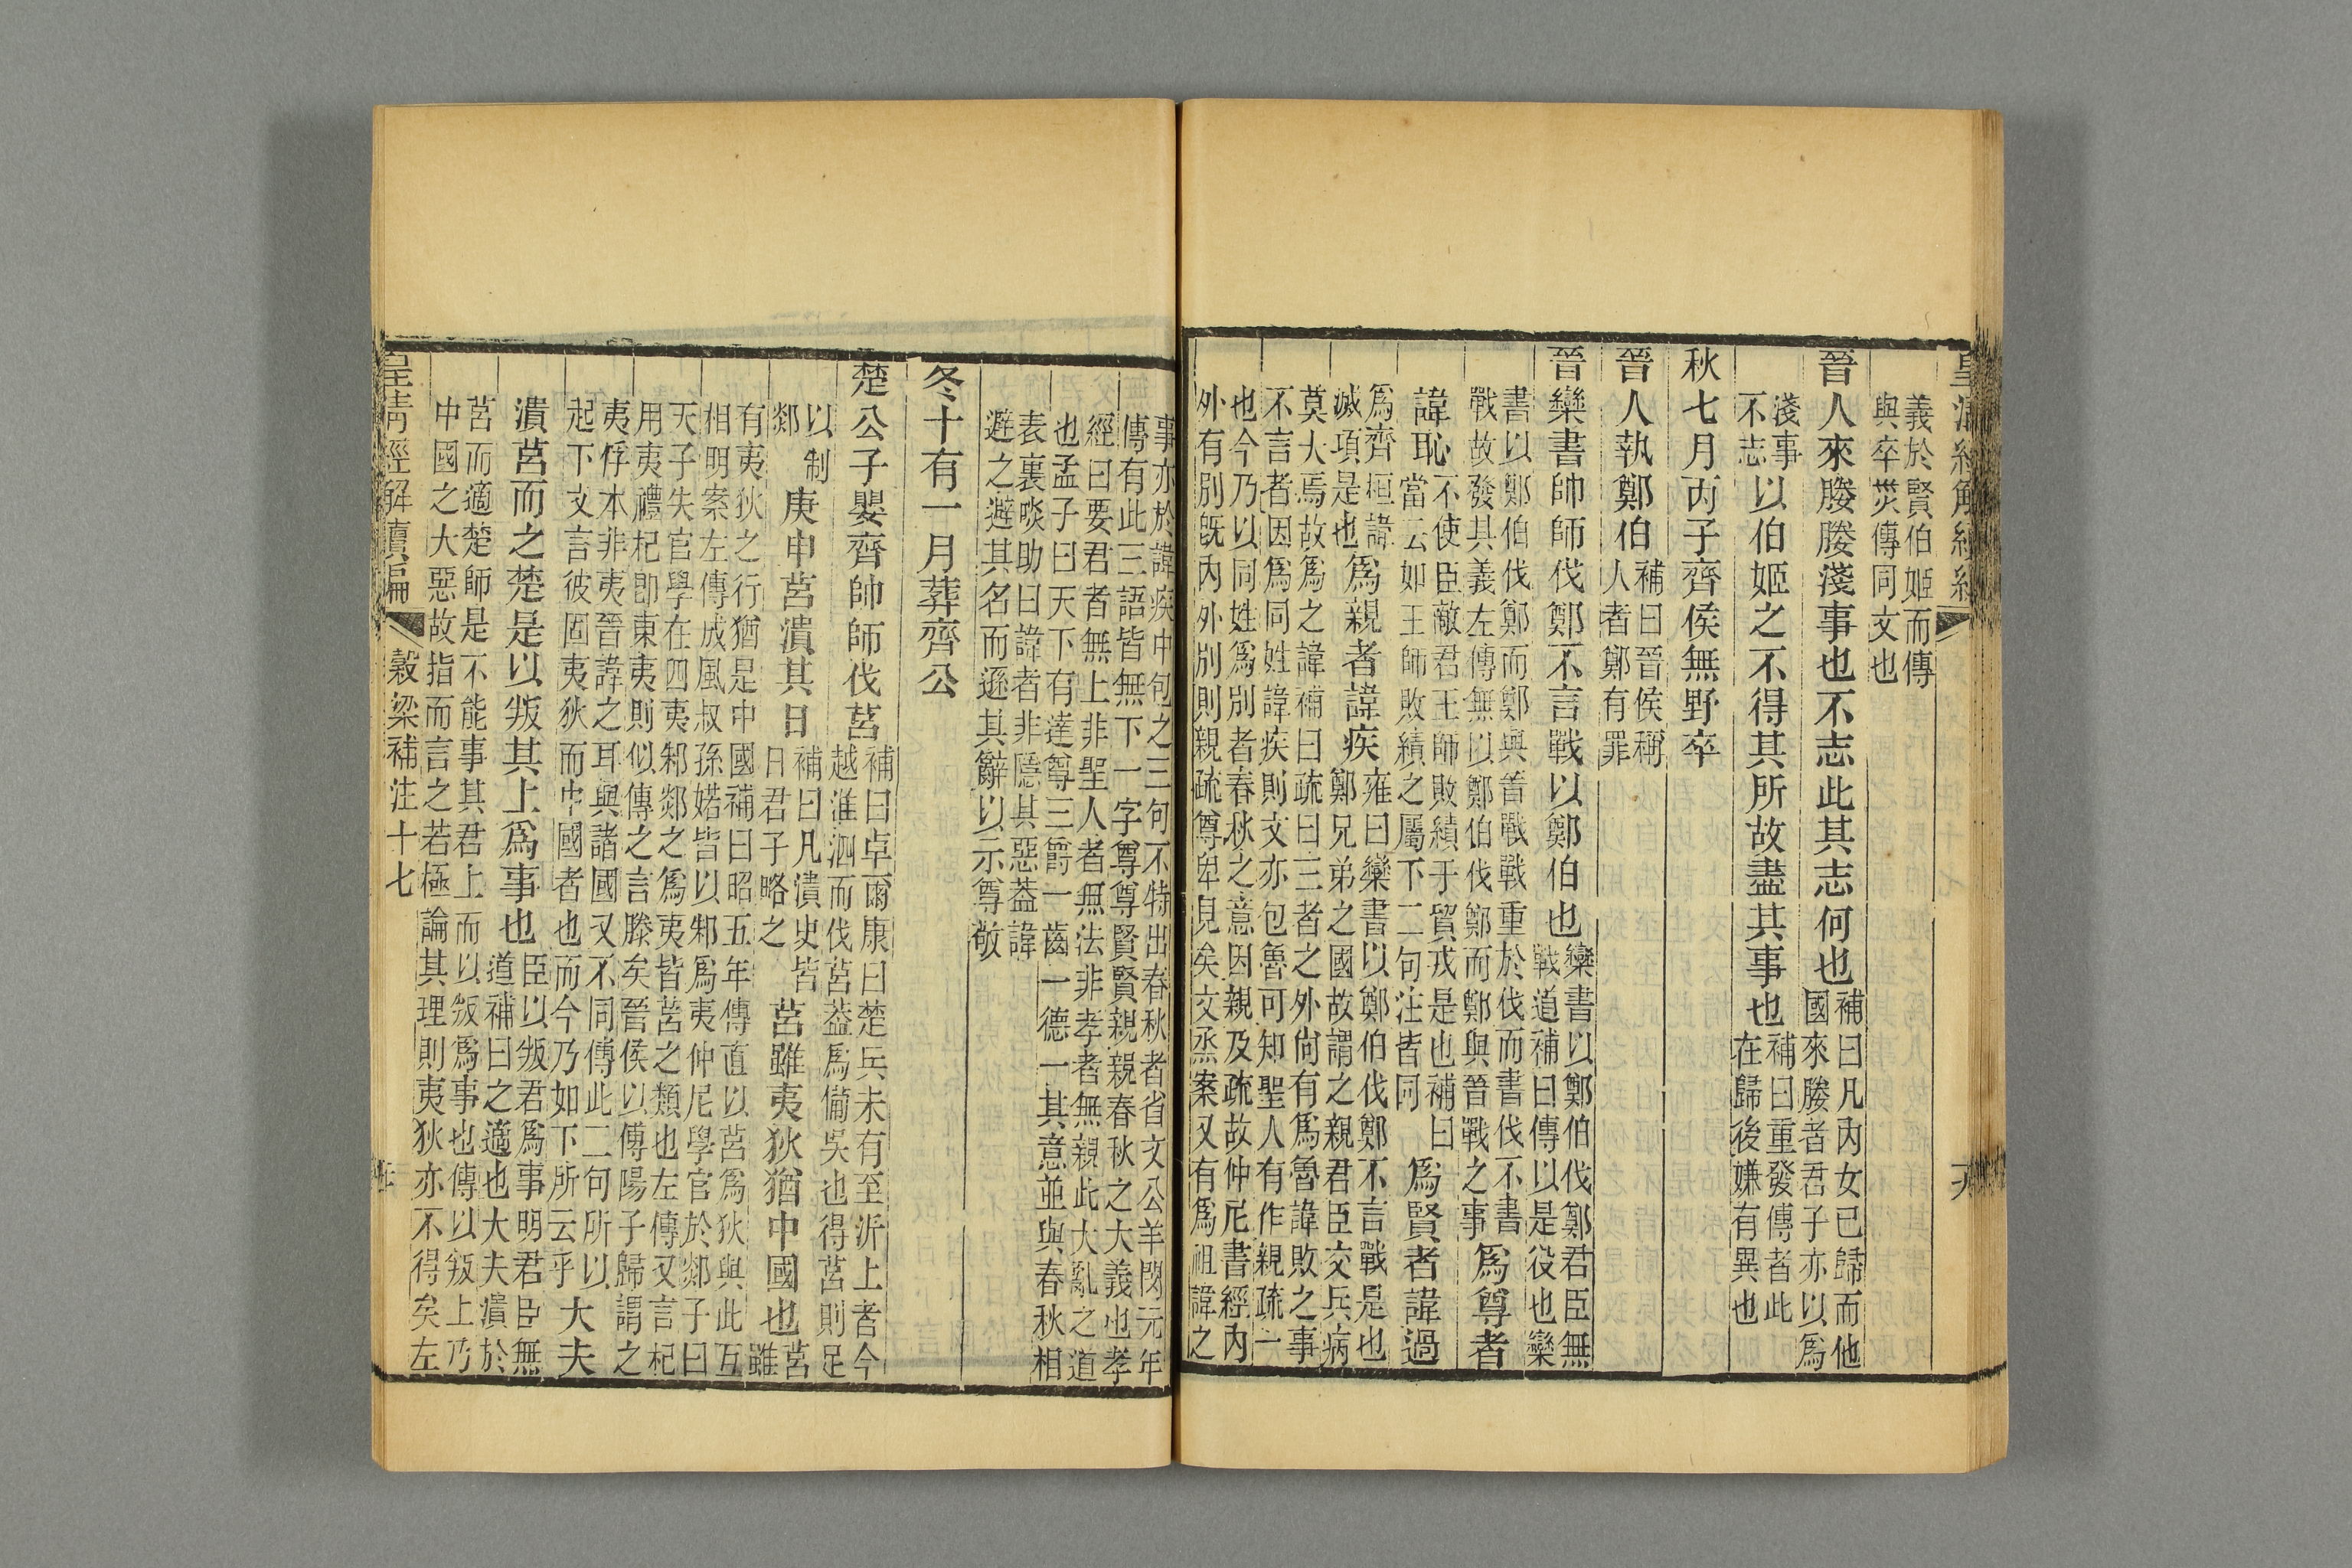 義於賢伯姬而傳
與卒災傳同文也
晉人來媵媵淺事也不志此其志何也
補曰凡內女已歸而他
國來媵者君子亦以爲
淺事
不志
以伯姬之不得其所故盡其事也
補曰重發傳者此
在歸後嫌有異也
秋七月丙子齊侯無野卒
晉人執鄭伯
補曰晉侯稱
人者鄭有罪
晉欒書帥師伐鄭不言戰以鄭伯也
欒書以鄭伯伐鄭君臣無
戰道補曰傳以是役也欒
書以鄭伯伐鄭而鄭與晉戰戰重於伐而書伐不書
戰故發其義左傳無以鄭伯伐鄭而鄭與晉戰之事
爲尊者
諱恥
不使臣敵君王師敗績于貿戎是也補曰
當云如王師敗績之屬下二句注皆同
爲賢者諱過
爲齊桓諱
滅項是也
爲親者諱疾
雍曰欒書以鄭伯伐鄭不言戰是也
鄭兄弟之國故謂之親君臣交兵病
莫大焉故爲之諱補曰疏曰三者之外尙有爲魯諱敗之事
不言者因爲同姓諱疾則文亦包魯可知聖人有作親疏一
也今乃以同姓爲別者春秋之意因親及疏故仲尼書經內
外有別旣內外別則親疏尊卑見矣文烝案又有爲祖諱之
事亦於諱疾中包之三句不特出春秋者省文公羊閔元年
傳有此三語皆無下一字尊尊賢賢親親春秋之大義也孝
經曰要君者無上非聖人者無法非孝者無親此大亂之道
也孟子曰天下有達尊三爵一齒一德一其意並與春秋相
表裏啖助曰諱者非隱其惡葢諱
避之避其名而遜其辭以示尊敬
冬十有一月葬齊公
楚公子嬰齊帥師伐莒
補曰卓爾康曰楚兵未有至沂上者今
越淮泗而伐莒葢爲備吳也得莒則足
以制
郯
庚申莒潰其日
補曰凡潰史皆
日君子略之
莒雖夷狄猶中國也
莒
雖
有夷狄之行猶是中國補曰昭五年傳直以莒爲狄與此互
相明案左傳成風叔孫婼皆以邾爲夷仲尼學官於郯子曰
天子失官學在四夷邾郯之爲夷皆莒之類也左傳又言杞
用夷禮杞卽東夷則似傳之言滕矣晉侯以傅陽子歸謂之
夷俘本非夷晉諱之耳與諸國又不同傳此二句所以
起下文言彼固夷狄而中國者也而今乃如下所云乎
大夫
潰莒而之楚是以叛其上爲事也
臣以叛君爲事明君臣無
道補曰之適也大夫潰於
莒而適楚師是不能事其君上而以叛爲事也傳以叛上乃
中國之大惡故指而言之若極論其理則夷狄亦不得矣左
皇清經解續編 穀梁補注十七